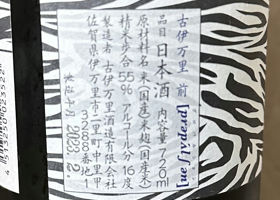 古伊万里 前 [prɪpéɪʃən]
品目 日本酒 内容量 720ml
原材料名 米(国産)米麹(国産米)
精米歩合55% アルコール分16度
製造者 古伊万里酒造有限会社
佐賀県伊万里市二里町中里甲
3288番地
製造年月 2023.2
4 513250 023522